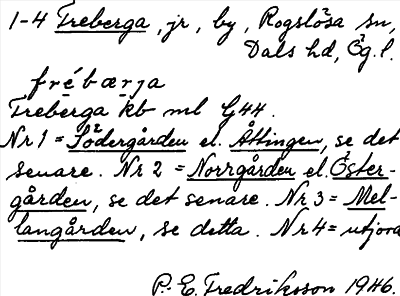 1-4 Treberga, jr, by, Rogslösa sn,
Dals hd, Ög.l.
fré́bærja
Treberga kb ml G44.
Nr 1 = Södergården el. Åttingen, se det
senare. Nr 2 = Norrgården el. Öster-
gården, se det senare. Nr 3 = Mel-
langården, se detta. Nr 4 = utjord
P. E. Fredriksson 1946.